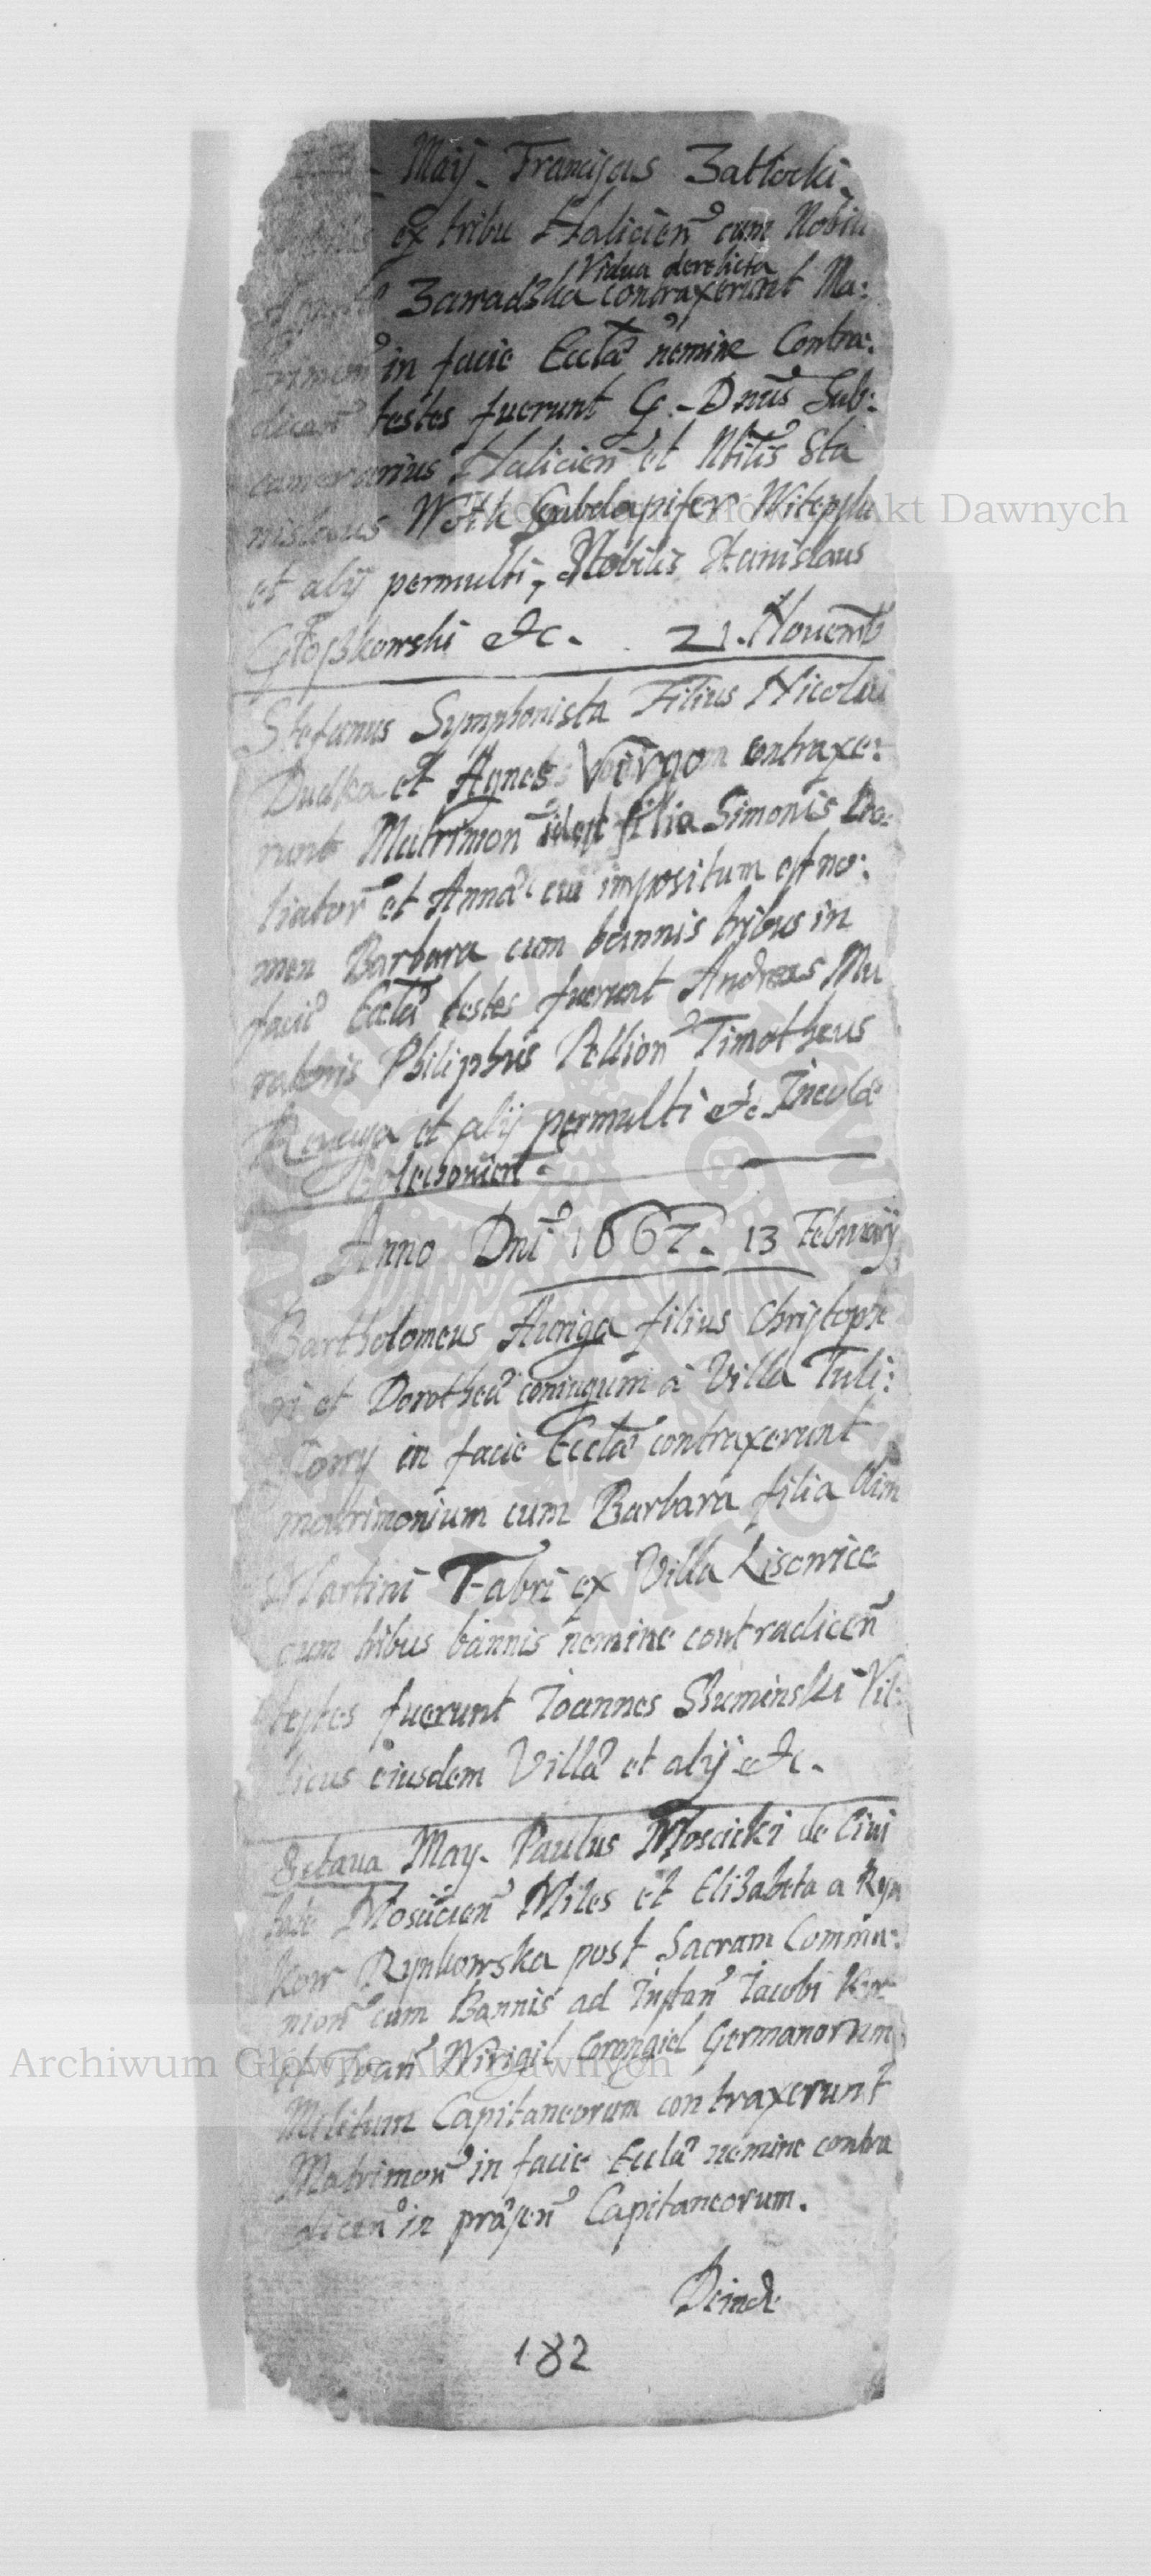 Maij. Franciscus Zatłocki.
ex tribu Halicien̄ cum Nobili
Vidua derelicta
Zawadzka contraxerunt Ma:
in facie Eccłæ nemine Contra:
dicen̄ testes fuerunt G. Dnus Sub:
camerarius Halicien̄ et Nbilis Sta
nislaus Subdapifer Witepski
et alij permulti, Nobilis Stanislaus
Głoszkowski etc. 21. Novemb
Stefanus Symphonista Filius Nicolai
Dudka et Agnes Virgo contraxe:
runt Matrimon̄ idest filia Simonis Do:
liator̄ et Annæ cui impositum est no:
men Barbara cum bannis tribus in
facie Eccłæ testes fuerunt Andreas Mu
ratoris Philiphus Pellion̄ Timotheus
et alij permulti etc. Incolæ
Anno Dni 1667. 13 Februarij
Bartholomeus Auriga filius Christopho
ri et Dorotheæ coniugum à Villa Tuli:
in facie Eccłæ contraxerunt
matrimonium cum Barbara filia olim
Martini Fabri ex Villa Lisowice
cum tribus bannis nemine contradicen̄
testes fuerunt Joannes Sluminski Vil:
licus eiusdem Villæ et alij etc.
Octaua May. Paulus Moscicki de Ciui
tate Mosticien̄ Miles et Elizabeta a Ryn
kow Rynkowska post Sacram Commu:
nion̄ cum Bannis ad Instan̄ Jacobi
et Joan̄ Germanorum
Militum Capitaneorum contraxerunt
Matrimon̄ in facie Eccłæ nemine contra
dicen̄ in præsen̄ Capitaneorum.
Deinde
182
Archiwum Główne Akt Dawnych
Archiwum Główne Akt Dawnych